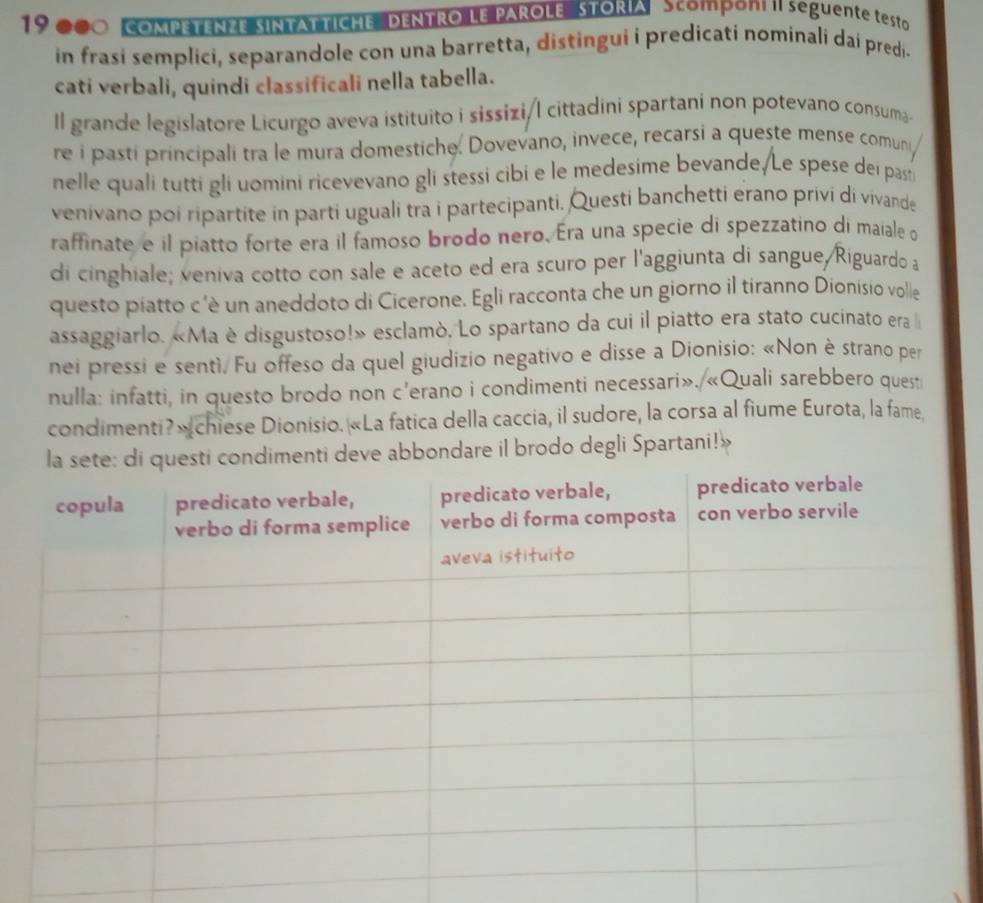 19 COMPETENZE SINTATTICHE DENTRO LE PAROLE STORIA Scomponi il seguente testo
in frasi semplici, separandole con una barretta, distingui i predicati nominali dai predi-
cati verbali, quindi classificali nella tabella.
Il grande legislatore Licurgo aveva istituito i sissizi/I cittadini spartani non potevano consuma-
re i pasti principali tra le mura domestiche. Dovevano, invece, recarsi a queste mense comuni/
nelle quali tutti gli uomini ricevevano gli stessi cibi e le medesime bevande/Le spese dei pasti
venivano poi ripartite in parti uguali tra i partecipanti. Questi banchetti erano privi di vivande
raffinate/e il piatto forte era il famoso brodo nero. Era una specie di spezzatino di maiale o
di cinghiale; veniva cotto con sale e aceto ed era scuro per l'aggiunta di sangue/Riguardo a
questo piatto c'è un aneddoto di Cicerone. Egli racconta che un giorno il tiranno Dionisio volle
assaggiarlo. «Ma è disgustoso!» esclamò. Lo spartano da cui il piatto era stato cucinato era lì
nei pressi e sentì/Fu offeso da quel giudizio negativo e disse a Dionisio: «Non è strano per
nulla: infatti, in questo brodo non c'erano i condimenti necessari»./«Quali sarebbero questi
condimenti?» chiese Dionisio. «La fatica della caccia, il sudore, la corsa al fiume Eurota, la fame,
la sete: di questi condimenti deve abbondare il brodo degli Spartani!»
copula
predicato verbale,
verbo di forma semplice
predicato verbale,
verbo di forma composta
predicato verbale
con verbo servile
aveva istituito